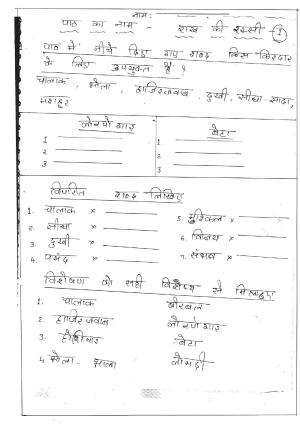 नाम:
पाठ का नाम - राख की रस्सी 1
पाठ में नीचे दिए गए शब्द किस किरदार
के लिए उपयुक्त हैं?
चालाक, भोला, हाजिरजवाब, दुखी, सीधा-सादा,
मशहूर
लोनपो गार बेटा
1 1
2 2
3 3
विपरित शब्द लिखिए
1. चालाक × 5. मुश्किल ×
2. सीधा × 6. विजय ×
3. दुखी × 7. संभव ×
4. पसंद ×
विशेषण को सही विशेष्य से मिलाइए
1. चालाक बीरबल
2. हाजिरजवाब लोनपो गार
3. होशियार बेटा
4. भोला-भाला लोमड़ी